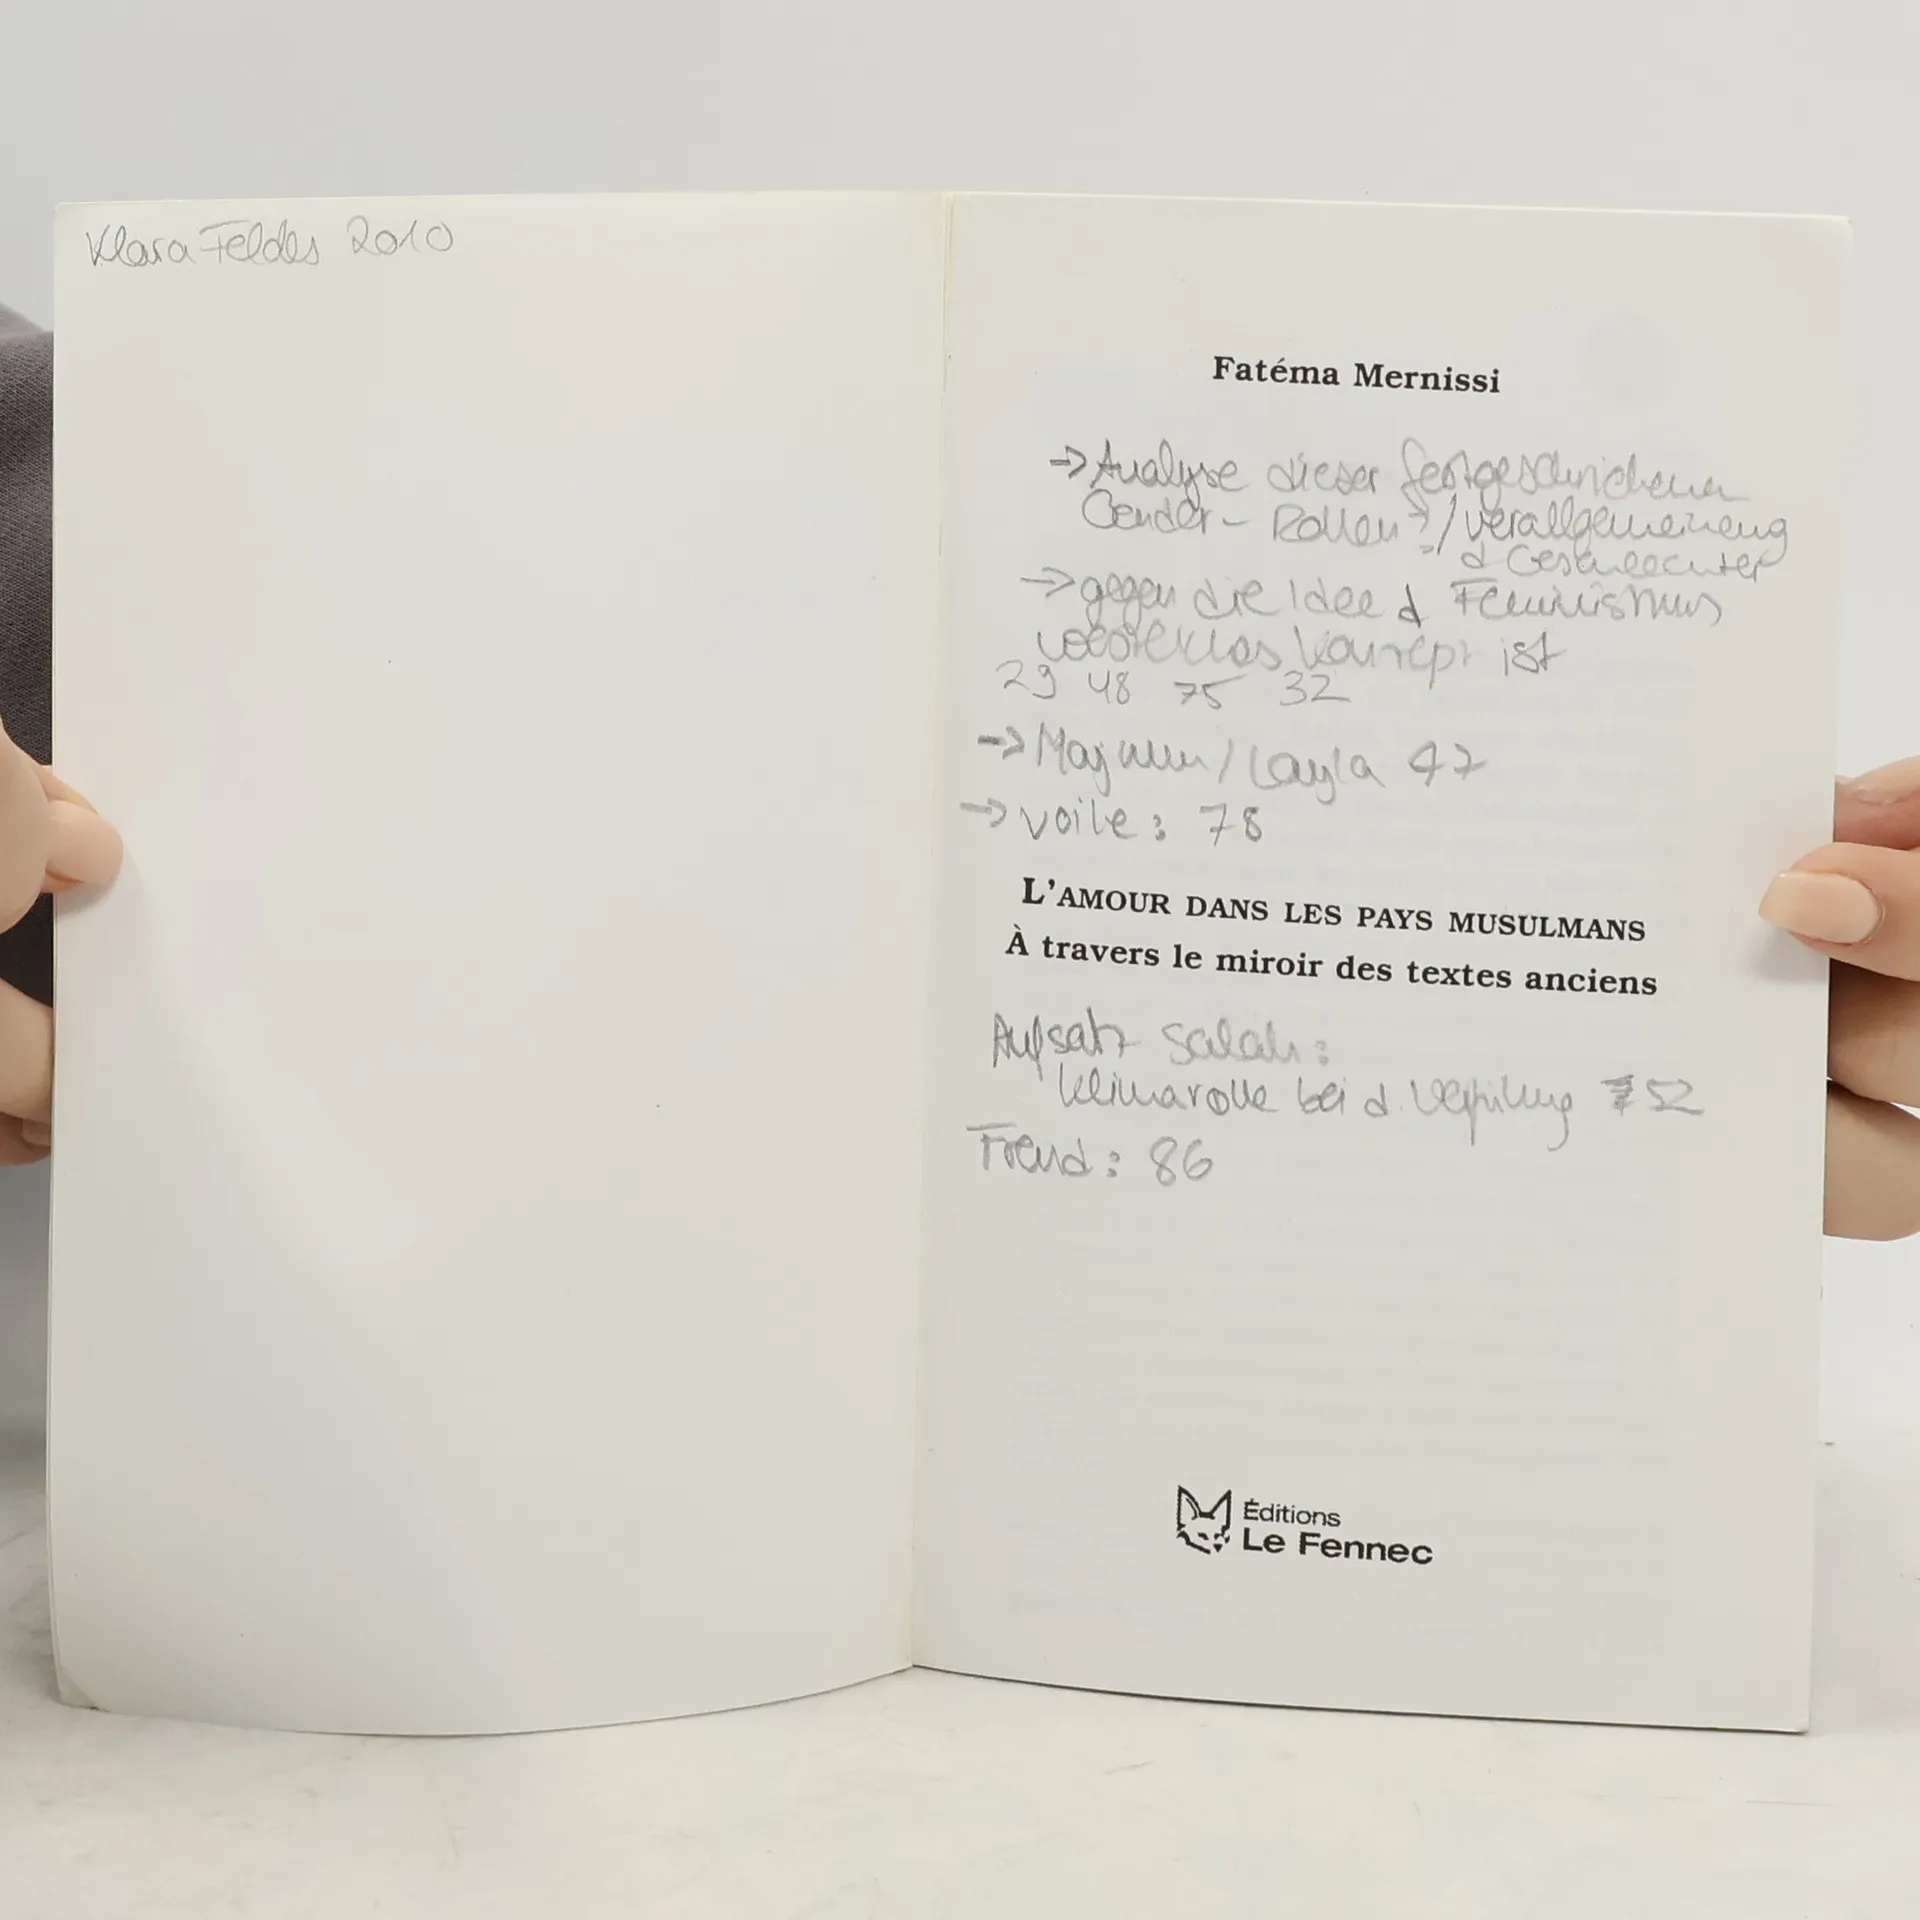 Klara Feldes 2010
Fatéma Mernissi
→ Analyse dieser festgeschriebenen
Gender- Rollen ? / Verallgemeinerung
d Geschlechter
→ gegen die Idee d Feminismus
Konzept ist
29 48 75 32
→ Majnun / Layla 47
→ voile : 78
L'AMOUR DANS LES PAYS MUSULMANS
À travers le miroir des textes anciens
Aufsatz Salah :
bei d. 52
Freud : 86
Éditions
Le Fennec